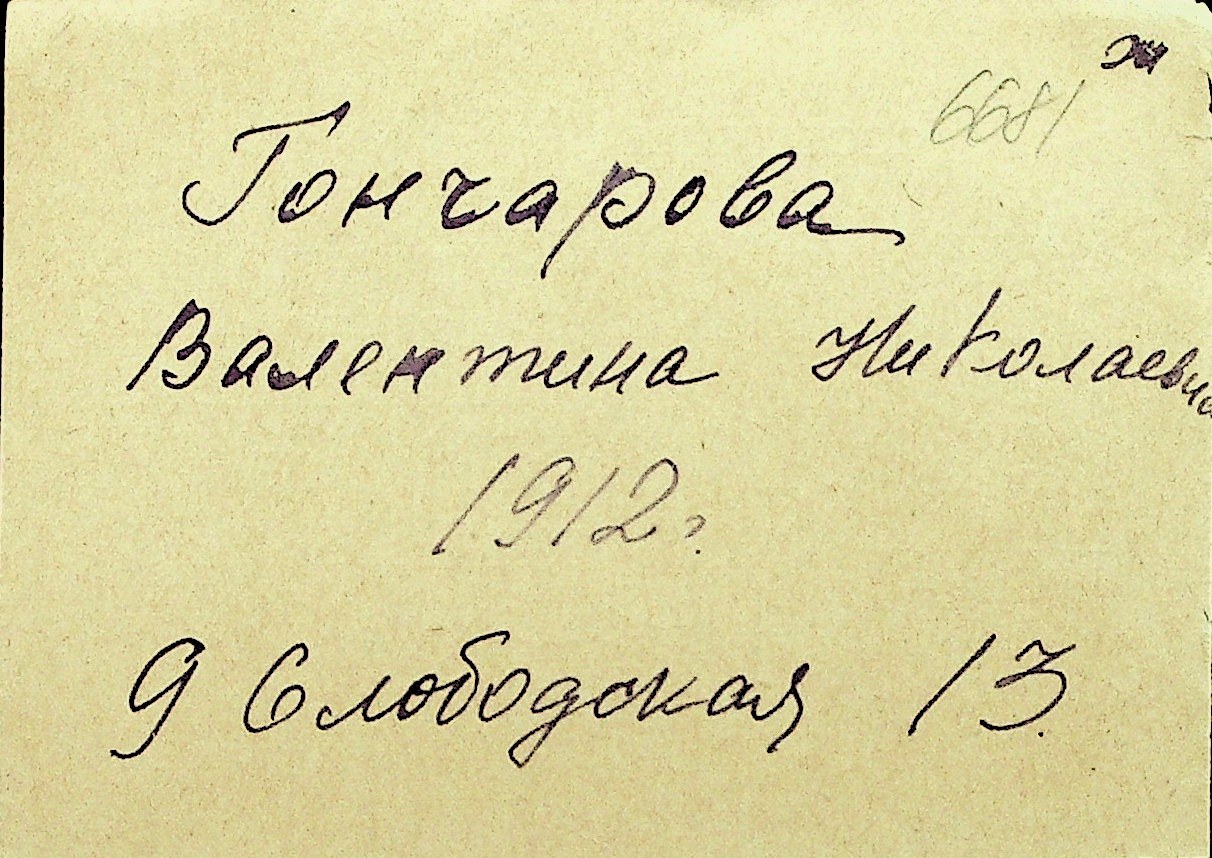 6681
Гончарова
Валентина Николаевна
1912г.
9 Слободская 13.